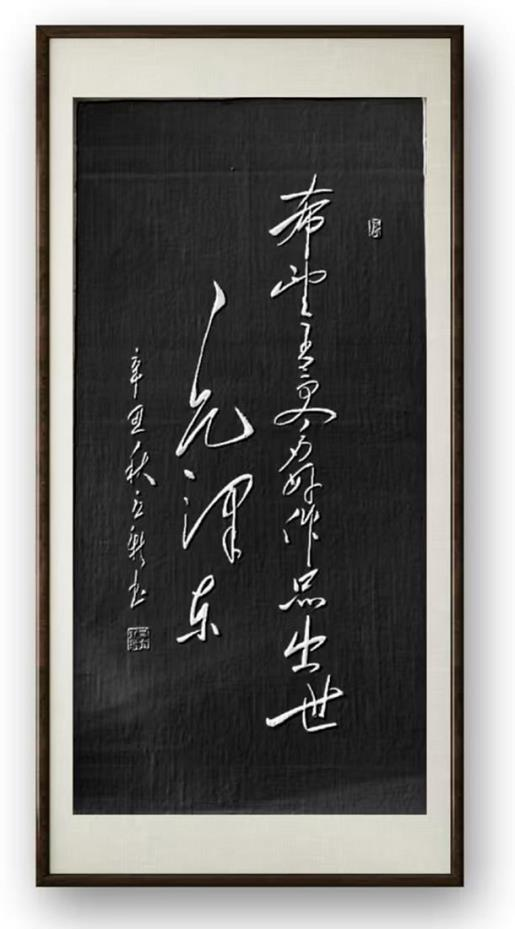 希望有更多好作品出世
毛泽东
辛丑秋 书